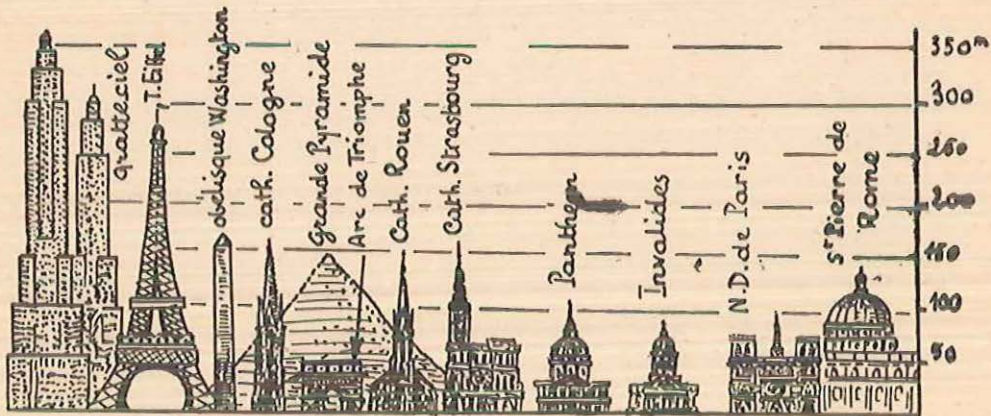 gratteciel
T. Eiffel
obélisque Washington
cath. Cologne
Grande Pyramide
Arc de Triomphe
Cath. Rouen
Cath. Strasbourg
Panthéon
Invalides
N.D. de Paris
St Pierre de
Rome
350m
300
250
200
150
100
50